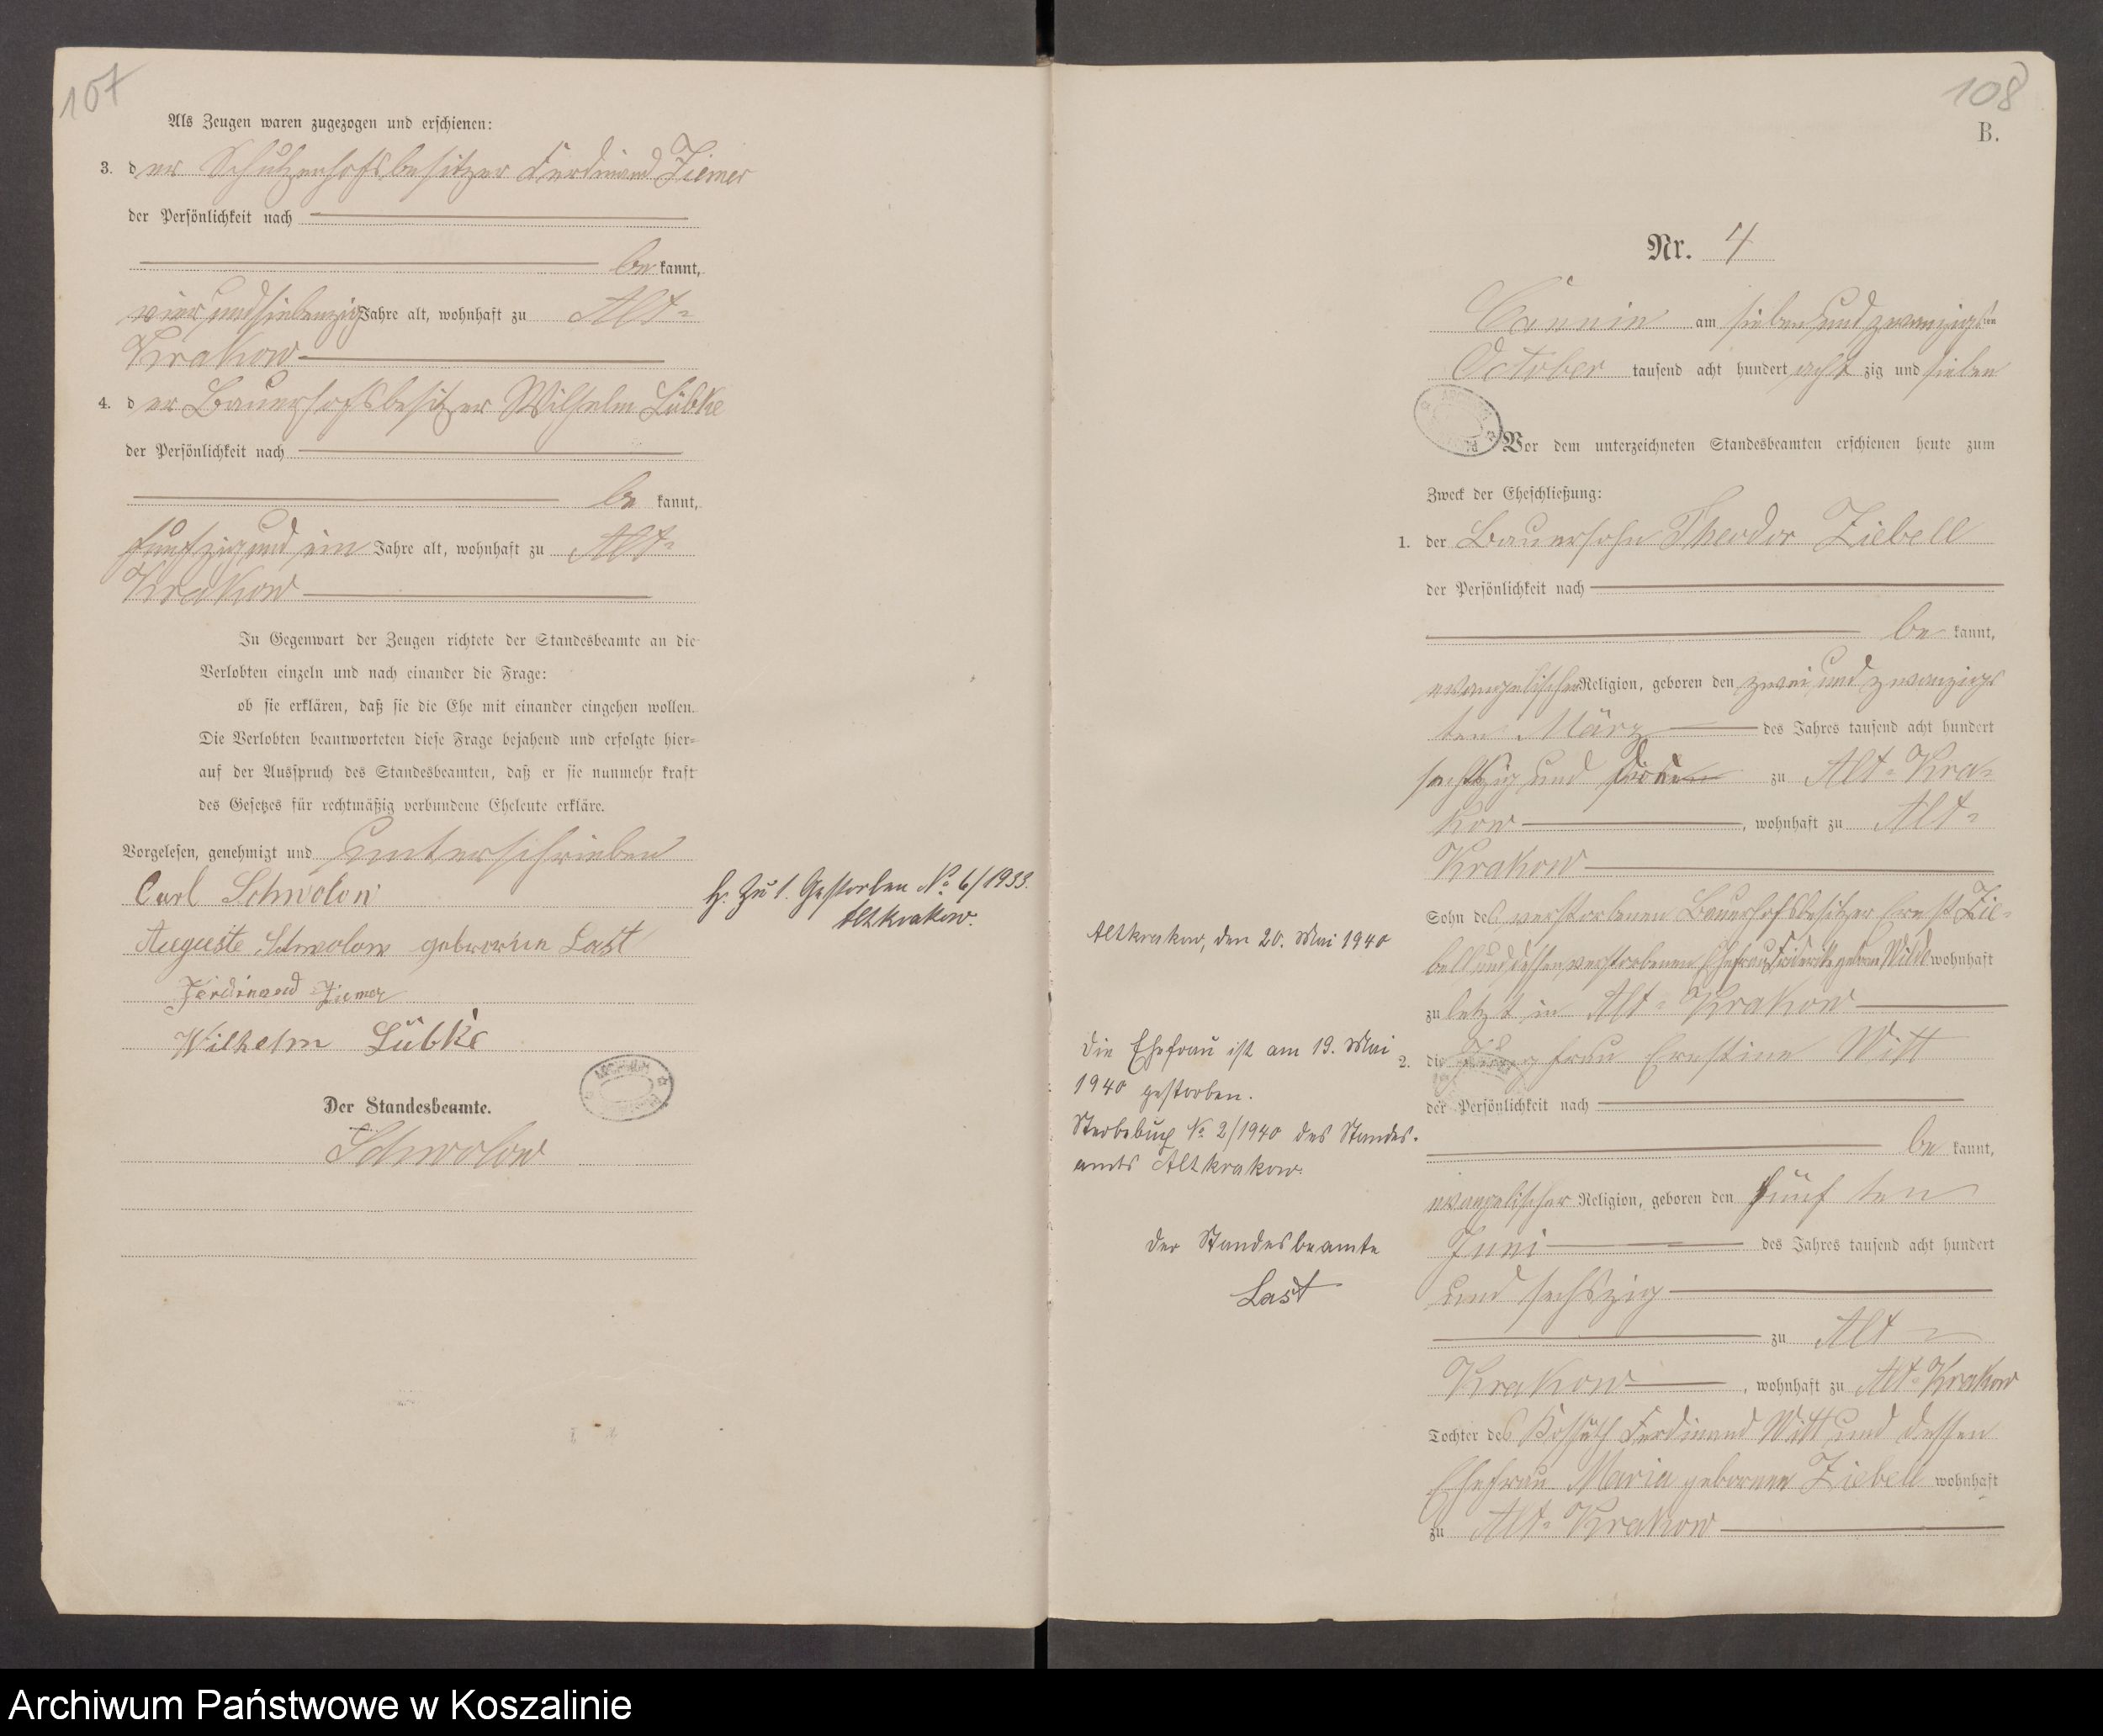 107
Als Zeugen waren zugezogen und erschienen:
3. der Schulzenhofsbesitzer Ferdinand Ziemer
der Persönlichkeit nach
bekannt,
vier und siebenzig Jahre alt, wohnhaft zu Alt-
Krakow
4. der Bauerhofsbesitzer Wilhelm Lübke
der Persönlichkeit nach
be kannt,
fünfzig und ein Jahre alt, wohnhaft zu Alt-
Krakow
In Gegenwart der Zeugen richtete der Standesbeamte an die
Verlobten einzeln und nach einander die Frage:
ob sie erklären, daß sie die Ehe mit einander eingehen wollen.
Die Verlobten beantworteten diese Frage bejahend und erfolgte hier-
auf der Ausspruch des Standesbeamten, daß er sie nunmehr kraft
des Gesetzes für rechtmäßig verbundene Eheleute erkläre.
Vorgelesen, genehmigt und unterschrieben
Carl Schwolow
Auguste Schwolow geborene Last
Ferdinand Ziemer
Wilhelm Lübke
Der Standesbeamte.
Schwolow
H. Zu 1. Gestorben № 6/1933.
Altkrakow.
108
B.
Nr. 4
Cannin am sieben und zwanzigsten
October tausend acht hundert achtzig und sieben
Vor dem unterzeichneten Standesbeamten erschienen heute zum
Zweck der Eheschließung:
1. der Bauersohn Theodor Ziebell
der Persönlichkeit nach
be kannt,
evangelischer Religion, geboren den zwei und zwanzigs
ten März des Jahres tausend acht hundert
sechszig und zu Alt-Kra-
kow, wohnhaft zu Alt-
Krakow
Sohn des verstorbenen Bauerhofsbesitzer Ernst Zie-
bell und dessen verstorbenen Ehefrau geborne Wilde wohnhaft
zuletzt in Alt-Krakow
2. die Jungfrau Ernstine Witt
der Persönlichkeit nach
be kannt,
evangelischer Religion, geboren den fünf ten
Juni des Jahres tausend acht hundert
und sechszig
zu Alt-
Krakow, wohnhaft zu Alt-Krakow
Tochter des Kossäth Ferdinand Witt und dessen
Ehefrau Maria geborene Ziebell wohnhaft
zu Alt-Krakow
Altkrakow, den 20. Mai 1940
Die Ehefrau ist am 19. Mai
1940 gestorben.
Sterbebuch № 2/1940 des Standes-
amts Altkrakow.
Der Standesbeamte
Last
Archiwum Państwowe w Koszalinie